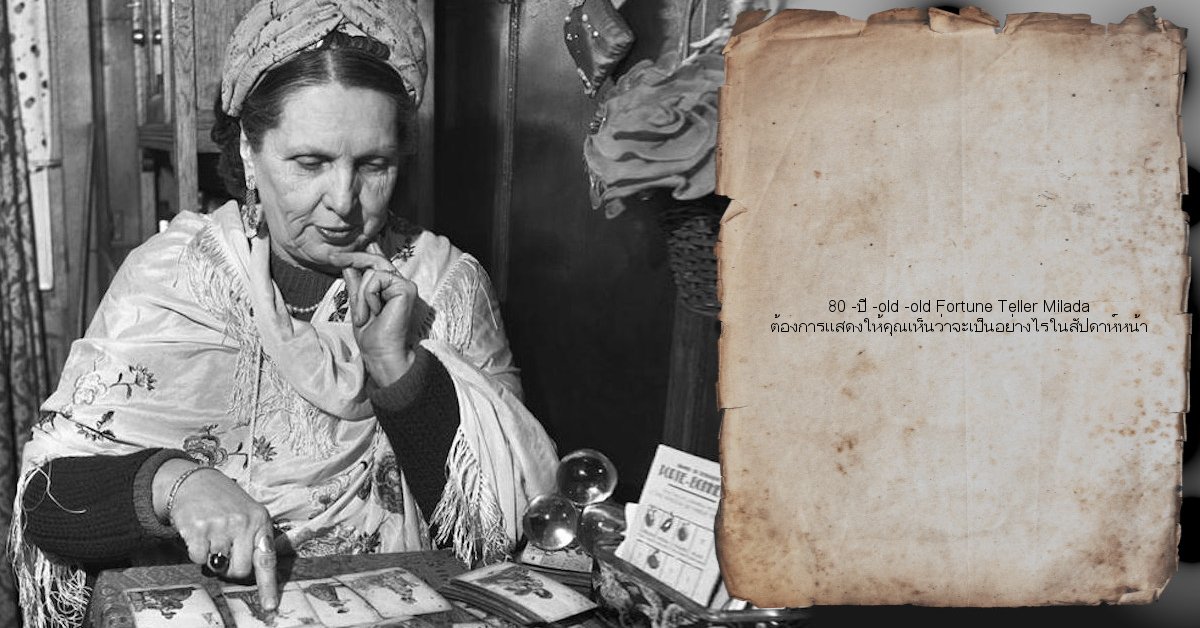 80 -ปี -old -old Fortune Teller Milada
ต้องการแสดงให้คุณเห็นว่าจะเป็นอย่างไรในสัปดาห์หน้า
PORTE-BONHE